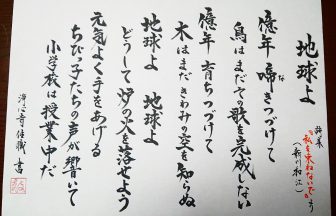 地球よ
詩集
"私を束ねないで"より
(新川和江)
億年 啼きつづけて
な
鳥はまだその歌を完成しない
億年 育ちつづけて
木はまだきわみの空を知らぬ
地球よ 地球よ
どうして炉の火を落せよう
元気よく手をあげる
ちびっ子たちの声が響いて
小学校は授業中だ
浄心寺住職 書